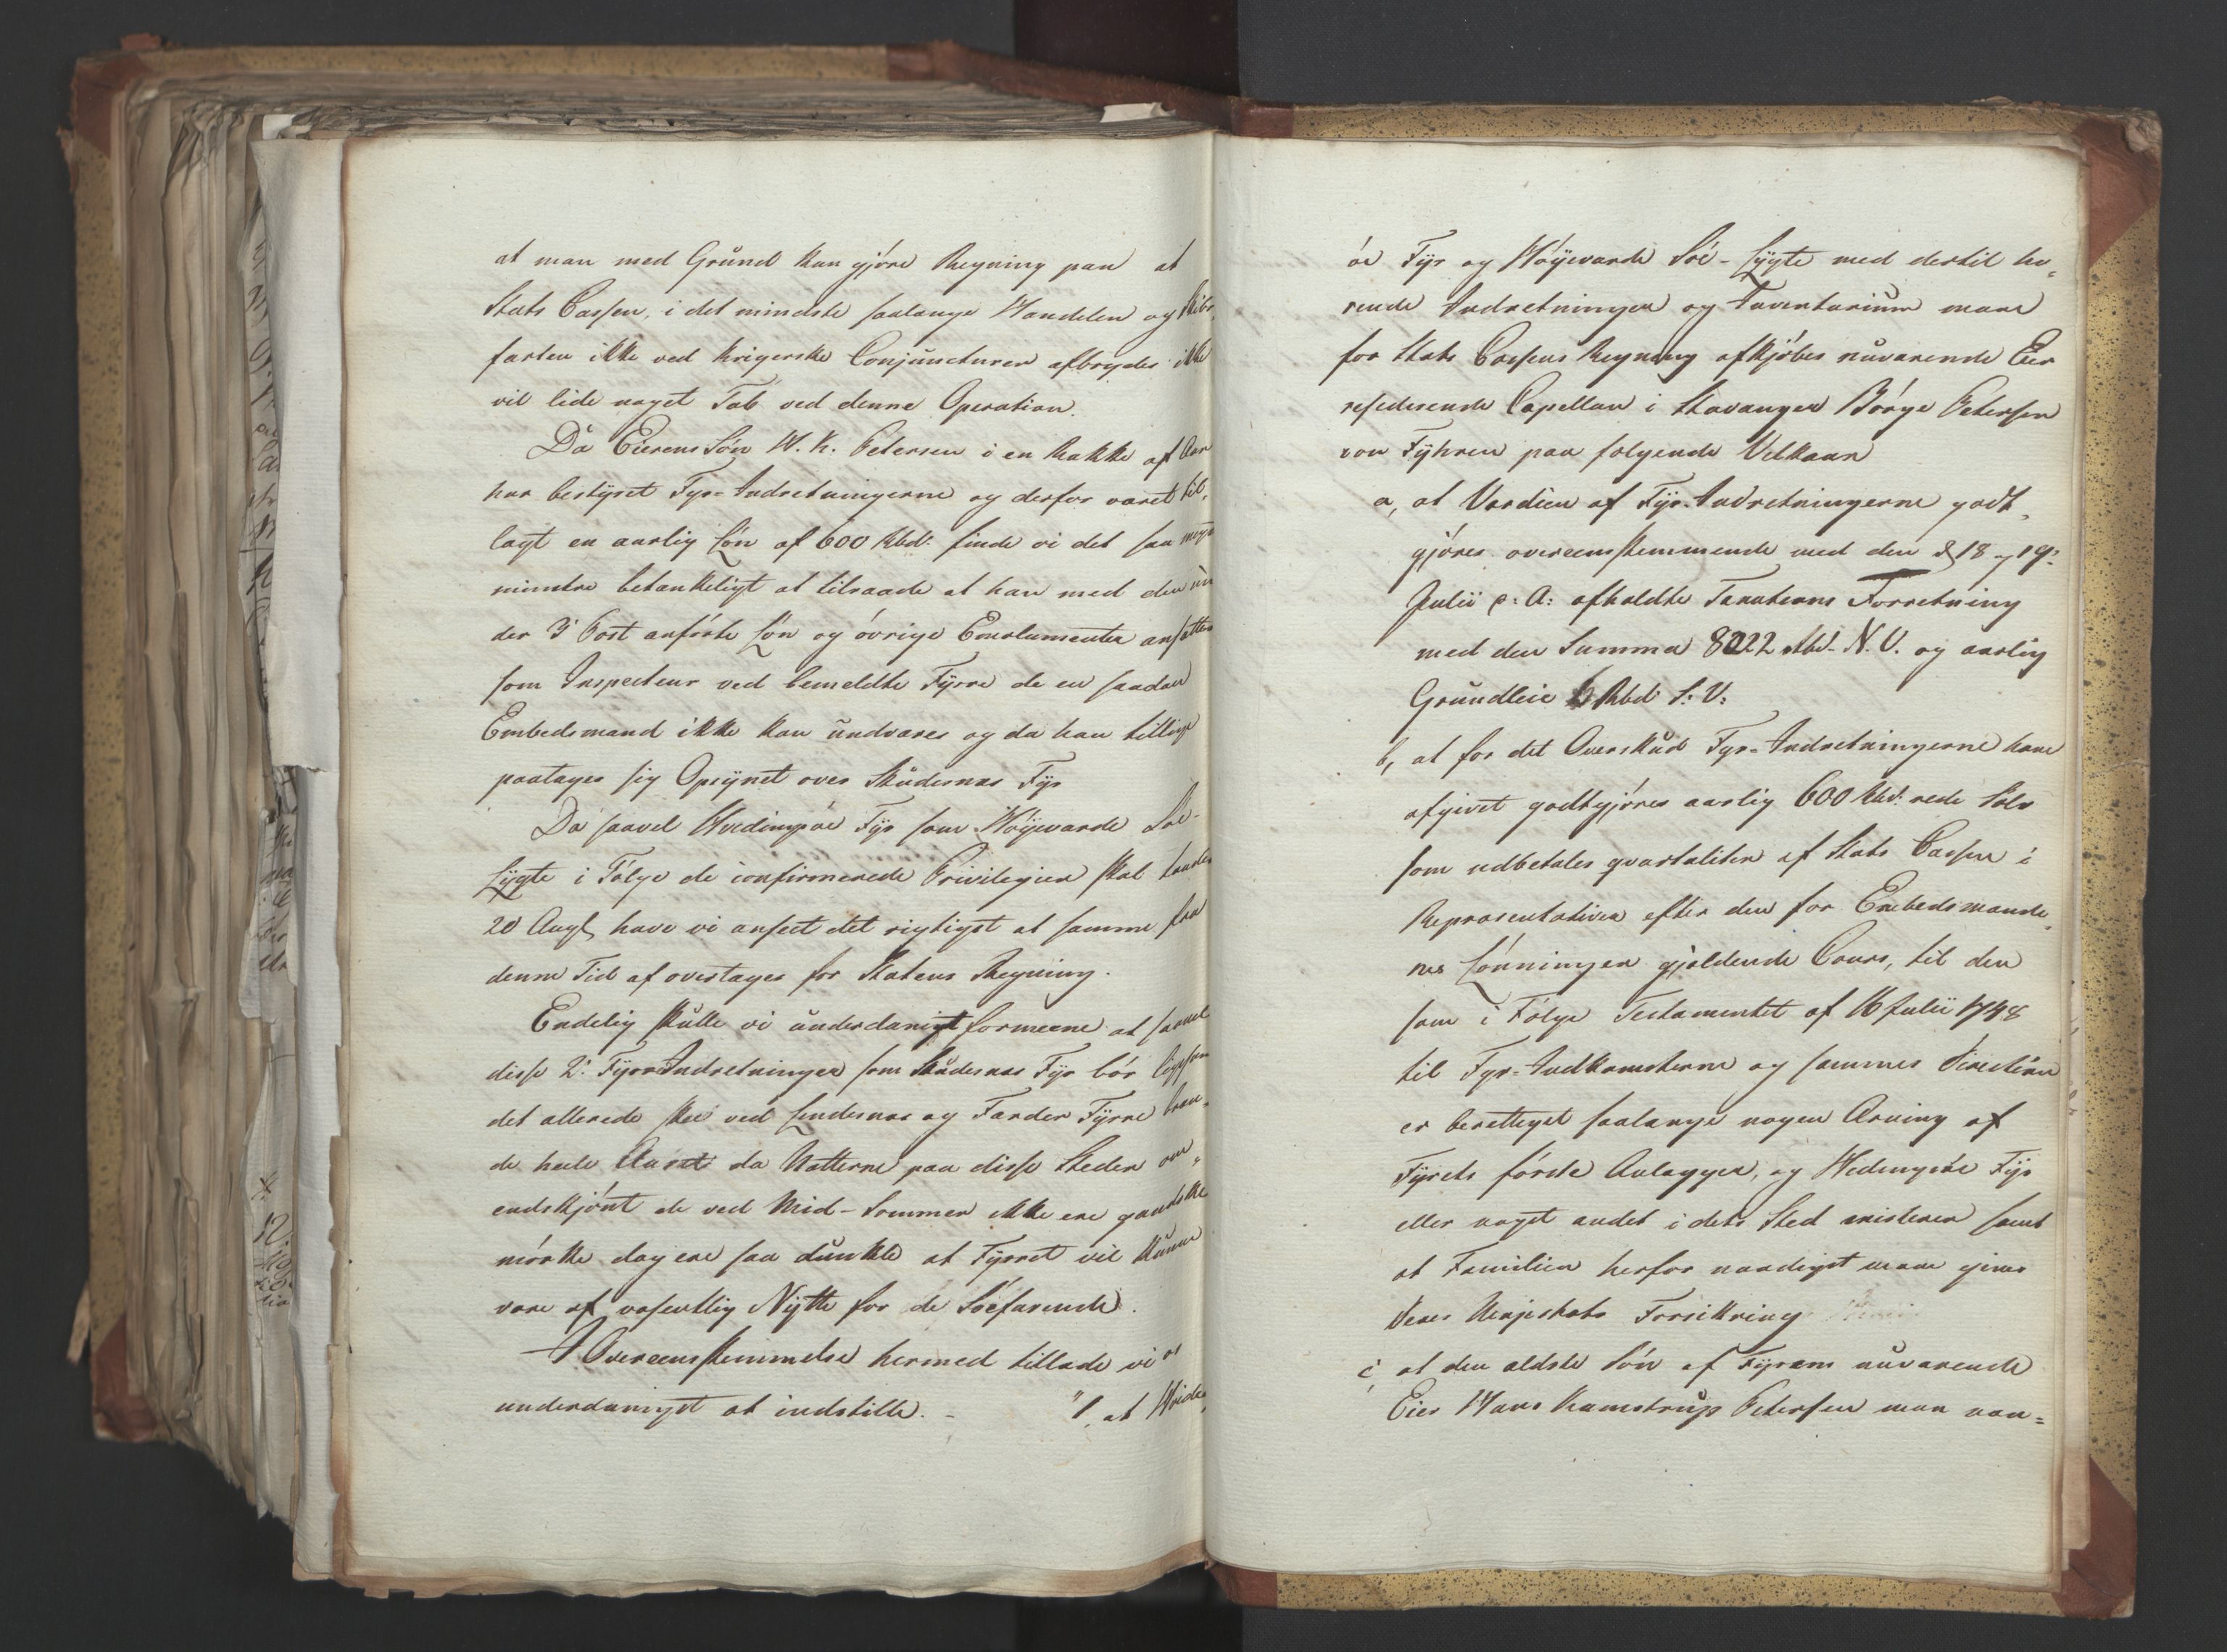 at man med Grund kan gjøre Regning paa at
Stats Cassen, i det mindste saalange Handelen og Skibs-
farten ikke ved krigerske Conjuncturer afbrydes ikke
vil lide noget Tab ved denne Operation.
Da Eierens Søn H. K. Petersen i en Række af Aar
har bestyret Fyr-Indretningerne og derfor været til-
lagt en aarlig Løn af 600 Rbd. finde vi det saa meget
mindre betænkeligt at tilraade at han med den un-
der 3 Post anførte Løn og øvrige Emolumenter ansættes
som Inspecteur ved bemeldte Fyrre da en saadan
Embedsmand ikke kan undværes og da han tillige
paatager sig Opsynet over Skudesnæs Fyr
Da saavel Hvedingsøe Fyr som Høyevarde Søe-
Lygte i Følge de confirmerede Privilegier skal tændes
20 Augt, have vi anseet det rigtigst at samme fra
denne Tid af overtages for Statens Regning.
Endelig skulle vi underdanigst formeene at saavel
disse 2de Fyr-Indretninger som Skudesnæs Fyr bør ligesom
det allerede skee ved Lindesnæs og Færder Fyrre bræn-
de heele Aaret da Nætterne paa disse Steder om-
endskjønt de ved Mid-Sommer ikke ere ganske
mørke dog ere saa dunkle at Fyrret vil kunne
være af væsentlig Nytte for de Søefarende.
I Overeensstemmelse hermed tillade vi os
underdanigst at indstille. -
"1, at Hvids-
øe Fyr og Høyevarde Søe-Lygte med dertil hø-
rende Indretninger og Inventarium maae
for Stats Cassens Regning afkjøbes nuværende Eier
residerende Capellan i Stavanger Børge Petersen
von Fyhren paa følgende Velkaar
a, at Værdien af Fyr-Indretningerne godt-
gjøres overeensstemmende med den d 18 og 19.
Julii d: A: afholdte Taxations Forretning
med den Summa 8022 Rbd. N. V. og aarlig
Grundleie Rbd S: V:
b, at for det Overskud Fyr-Indretningerne have
afgivet godtgjøres aarlig 600 Rbd. rede Sølv
som udbetales qvartaliter af Stats Cassen i
Repræsentativer efter den for Embedsmænde-
nes Lønninger gjældende Cours, til den
som i Følge Testamentet af 16 Julii 1748
til Fyr-Indkomsterne og sammes Direction
er berettiget saalænge nogen Arving af
Fyrets første Anlægger, og Hvidingsøe Fyr
eller noget andet i dets Sted existerer samt
at Familien herfor naadigst maae gives
Deres Majestæts Forsikring
c, at den ældste Søn af Fyrens nuværende
Eier Hans Kamstrup Petersen maa næv=